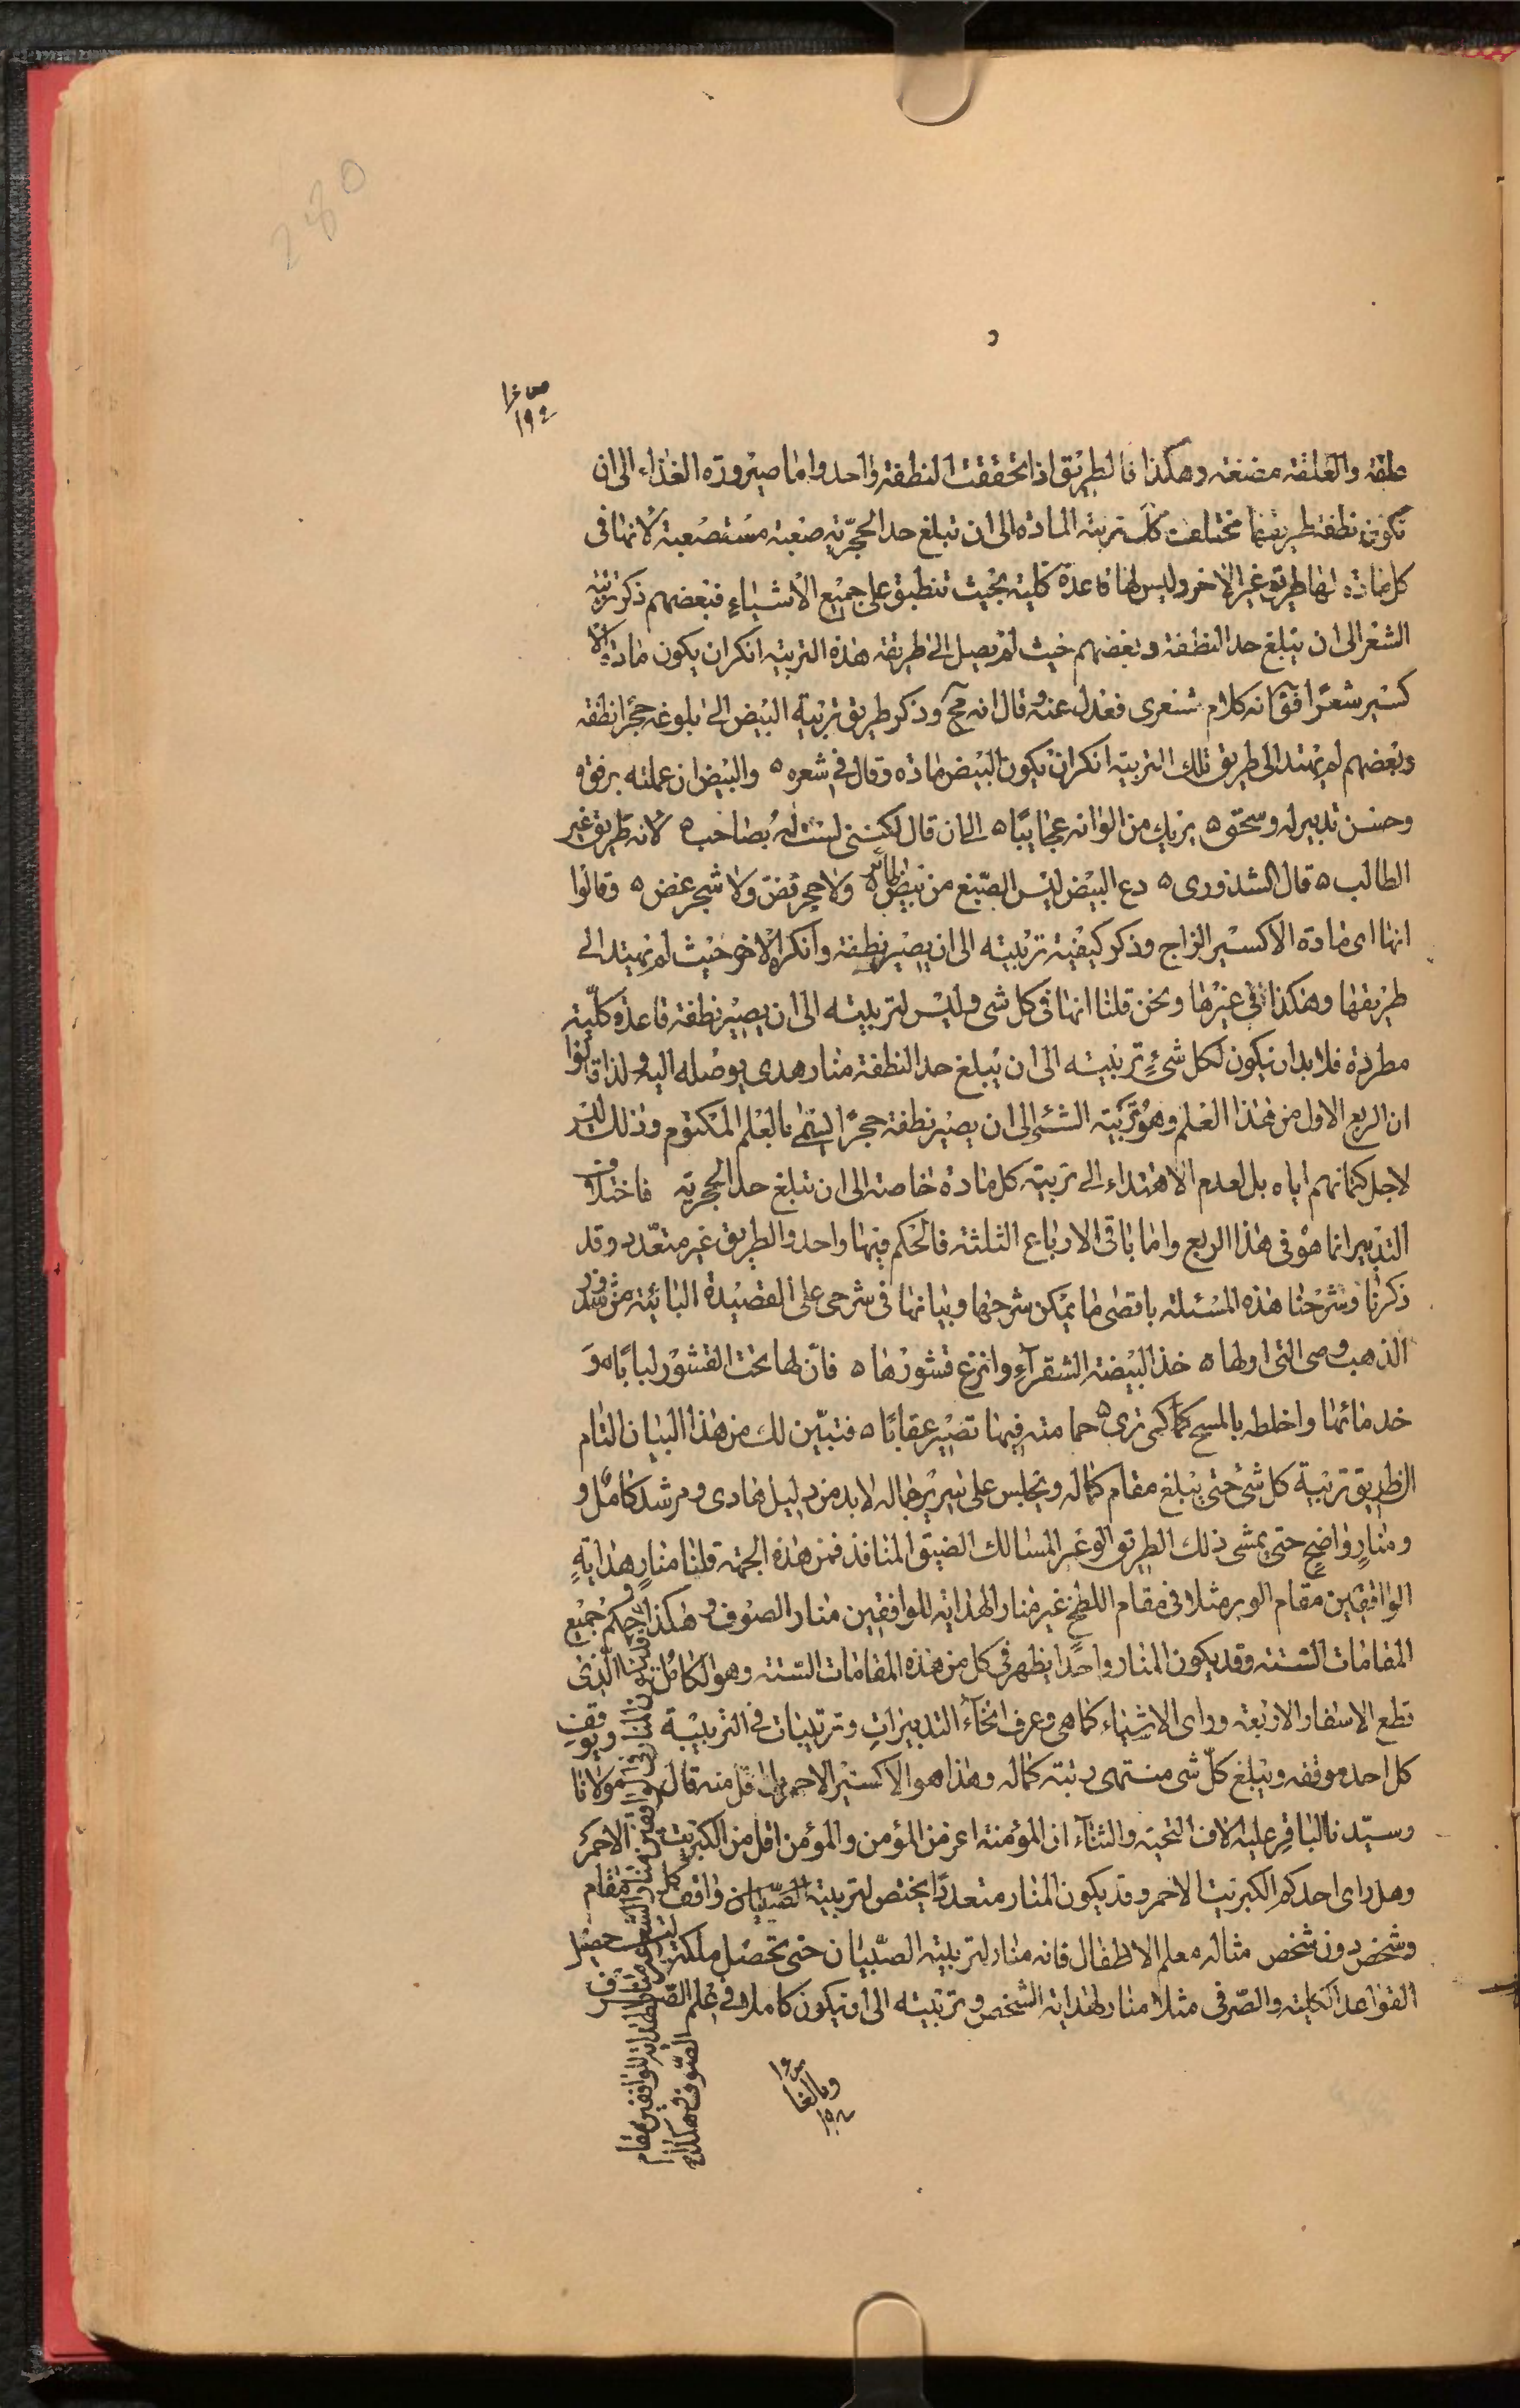 280
علقة والعلقة مضغة وهكذا فالطريق اذا تحققت النطفة واحد واما صيرورة الغذاء الى ان
تكون نطفة طريقها مختلفة كك تربية المادة الى ان تبلغ حد الحجرية صعبة مستصعبة لانها فى
كل مادة لها طريق غير الاخر وليس لها قاعدة كلية بحيث تنطبق على جميع الاشياء فبعضهم ذكر تربية
الشعر الى ان يبلغ حد النطفة وبعضهم حيث لم يصل الى طريقة هذه التربية انكر ان يكون مادة الا
كسير شعرا فى كلام شعرى فعدل عنه وقال انه مح وذكر طريق تربية البيض الى بلوغه حجرا نطفة
وبعضهم لم يهتد الى طريق تلك التربية انكر ان يكون البيض مادة وقال فى شعره ٥ والبيض ان عملته برفق ٥
وحسن تدبير له وسحق ٥ يريك من الوانه عجايبا ٥ الى ان قال لكننى لست له بصاحب ٥ لانه طريق غير
الطالب ٥ قال الشذورى ٥ دع البيض ليس الصبغ من بيض طائر ٥ ولا حجر فض ولا شجر غض ٥ وقالوا
انها اى مادة الاكسير الزاج وذكر كيفية تربيته الى ان يصير نطفة وانكره الاخر حيث لم يهتد الى
طريقها وهكذا فى غيرها ونحن قلنا انها فى كل شى وليس لتربيته الى ان يصير نطفة قاعدة كلية
مطردة فلابد ان يكون لكل شئ تربيته الى ان يبلغ حد النطفة منار هدى يوصله اليه ولذا قالوا
ان الربع الاول من هذا العلم وهو تربية الشئ الى ان يصير نطفة حجرا يسمى بالعلم المكتوم وذلك ليس
لاجل كتمانهم اياه بل لعدم الاهتداء الى تربية كل مادة خاصة الى ان تبلغ حد الحجرية فاختلاف
التدبير انما هو فى هذا الربع واما باقى الارباع الثلثة فالحكم فيها واحد والطريق غير متعدد وقد
ذكرنا وشرحنا هذه المسئلة باقصى ما يمكن شرحها وبيانها فى شرحى على القصيدة البائية من شذور
الذهب وهى التى اولها ٥ خذ البيضة الشقراء وانزع قشورها ٥ فان لها تحت القشور لبابا ٥ و
خذ مائها واخلطه بالمسح كى ترى ٥ حمامته فيها تصير عقابا ٥ فتبين لك من هذا البيان التام
ان طريق تربية كل شئ حتى يبلغ مقام كماله ويجلس على سرير جماله لابد من دليل هادى ومرشد كامل و
ومنار واضح حتى يمشى ذلك الطريق الوعر المسالك الضيق المنافذ فمن هذه الجهة قلنا منار هداية
الواقفين مقام الوبر مثلا فى مقام اللطخ غير منار الهداية للواقفين منار الصوف وهكذا حكم جميع
المقامات الستة وقد يكون المنار واحدا يظهر فى كل من هذه المقامات الستة وهو الكامل الذى
قطع الاسفار الاربعة وراى الاشياء كما هى وعرف انحاء التدبيرات وترتيبات فى التربية ويوقف
كل احد موقفه ويبلغ كل شى منتهى رتبة كماله وهذا هو الاكسير الاحمر بل اقل منه قال مولانا
وسيدنا الباقر عليه الاف التحية والثناء ان المؤمنة اعز من المؤمن والمؤمن اقل من الكبريت الاحمر
وهل راى احدكم الكبريت الاحمر وقد يكون المنار متعددا يختص لتربية الصبيان واقف كل مقام
وشخص دون شخص مثاله معلم الاطفال فانه منار لتربية الصبيان حتى تحصل ملكة حصل
القواعد الكلية والصرفى مثلا منار لهداية الشخص وتربيته الى ان يكون كاملا فى علم الصرف
للواقفين مقام
الصوف وهكذا